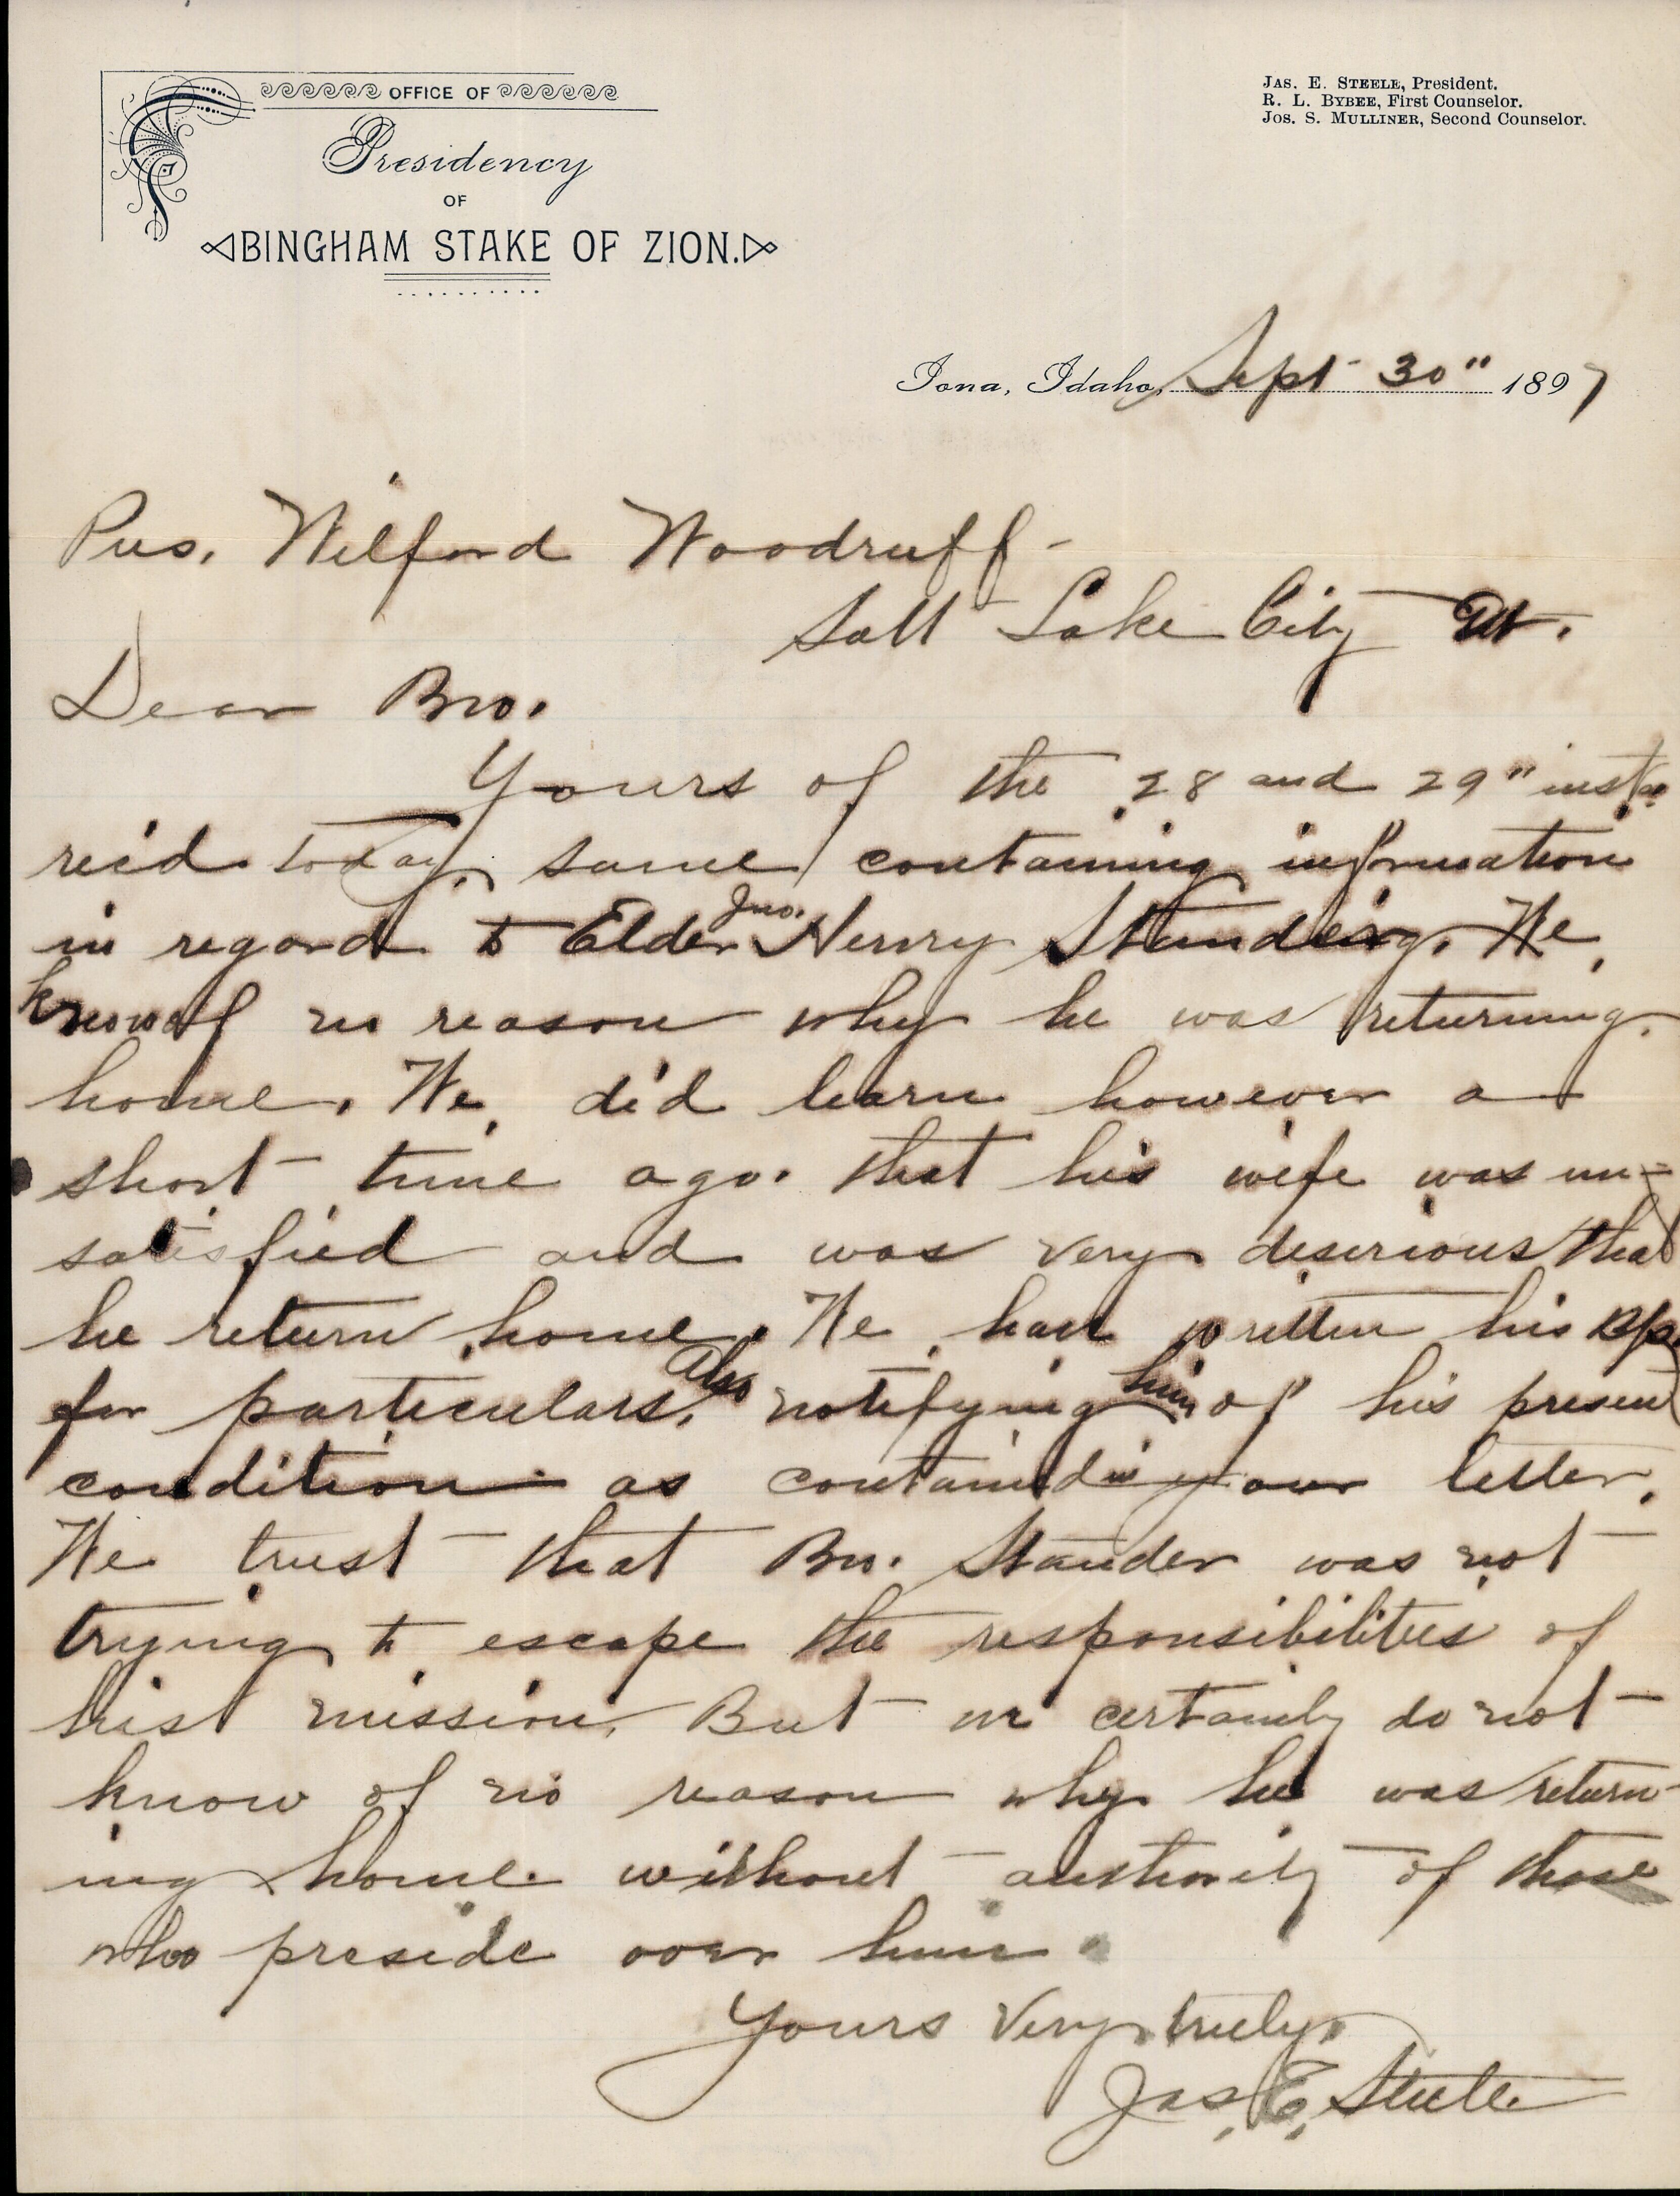 OFFICE OF
Presidency
OF
BINGHAM STAKE OF ZION.
JAS. E. STEELE, President.
R. L. BYBEE, First Counselor.
JOS. S. MULLINER, Second Counselor.
Iona, Idaho, Sept 30" 1897
Pres. Wilford Woodruff-
Salt Lake City Ut.
Dear Bro.
Yours of the 28 and 29" inst
rec'd today, same containing information
in regard to Elder Jno. Henry Standing. We
know of no reason why he was returning
home. We did learn however a
short time ago. that his wife was un-
satisfied and was very desirious that
he return home. We have written his Bp.
for particulars, also notifying him of his present
condition as contained in your letter.
We trust that Bro. Stander was not
trying to escape the responsibilities of
hist mission, But we certainly do not
know of no reason why he was return-
ing home without authority of those
who preside over him
Yours Very truly.
Jas. E. Steele